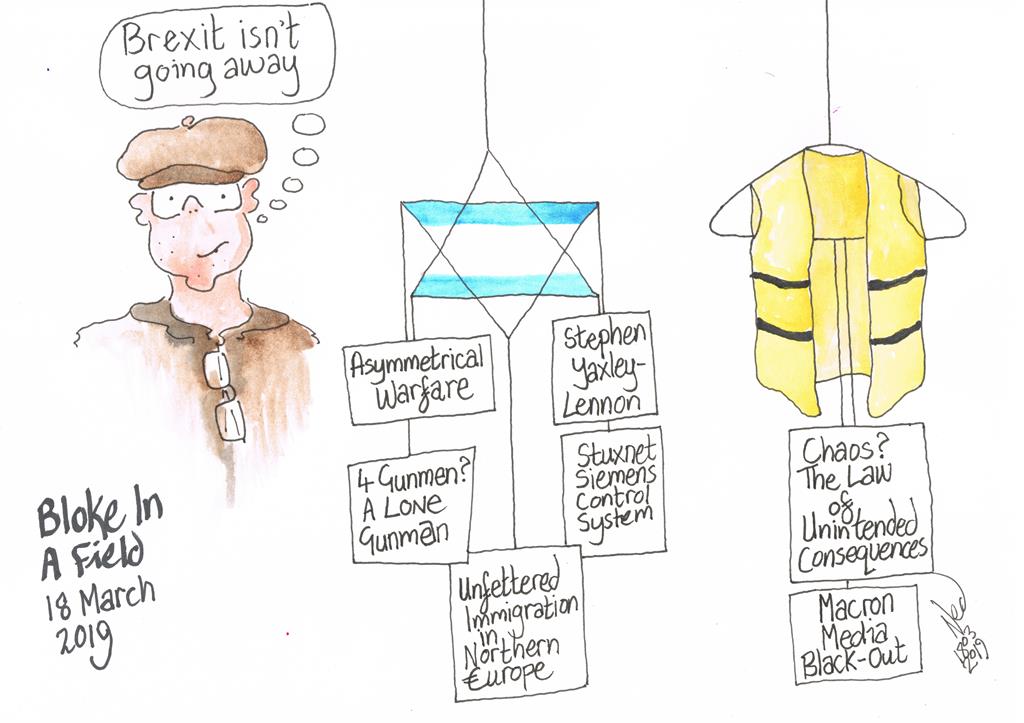 Brexit isn't
going away
Bloke In
A Field
18 March
2019
Asymmetrical
Warfare
4 Gunmen?
A Lone
Gunm@n
Unfettered
Immigration
in
Northern
€urope
Stephen
Yaxley-
Lennon
Stuxnet
Siemens
Control
System
Chaos?
The Law
of
Unintended
Consequences
Macron
Media
Black-Out
2019